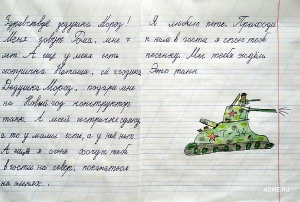 Здравствуй дедушка Мороз!
Меня зовут Гоша, мне 7
лет. А ещё у меня есть
сестричка Наташа, ей 3 годика
Дедушка Мороз, подари мне
на Новый год конструктор
танк. А моей сестричке
а то у мамы есть, а у неё нет.
А папа я очень хочу к тебе
в гости на север, покататься
на оленях.
Я люблю петь. Приходи
к нам в гости я спою тебе
песенку. Мы тебя ждём
Это танк
ADME.RU